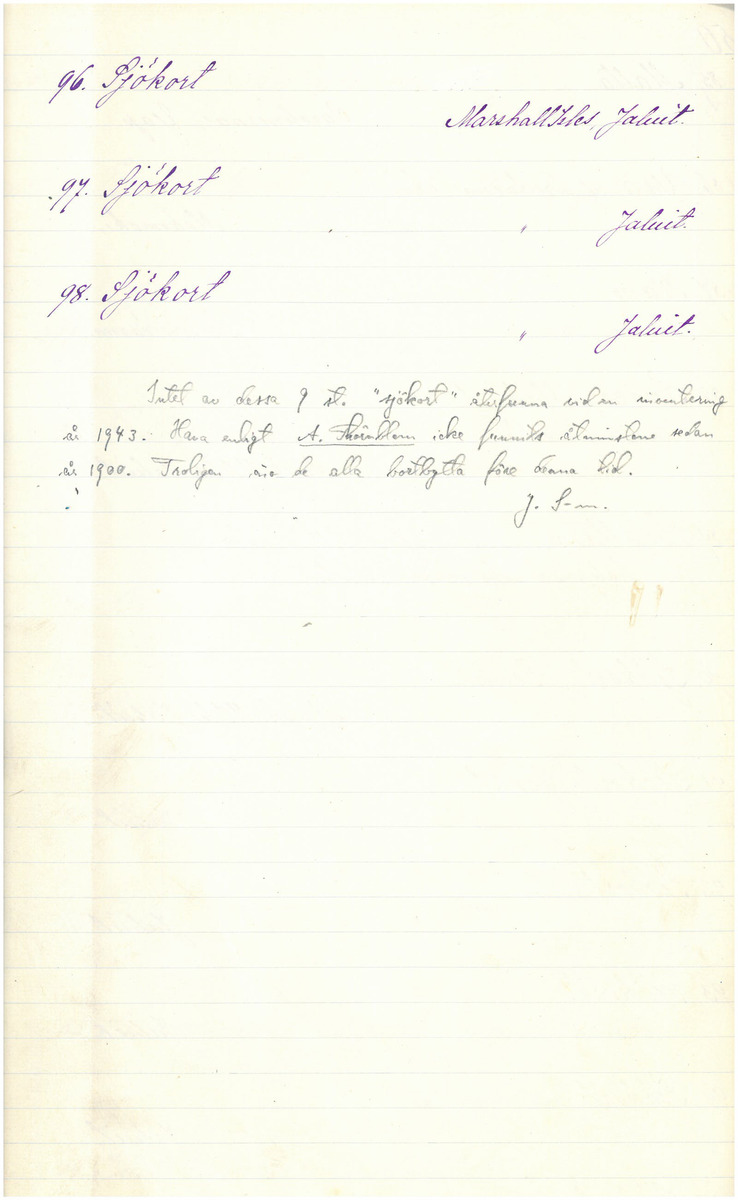 96. Sjökort
Marshall Isles, Jaluit.
97. Sjökort
" Jaluit.
98. Sjökort
" Jaluit.
Intet av dessa 9 st. "sjökort" återfunna vid en inventering
år 1943. Hava enligt A. Thörnblom icke funnits åtminstone sedan
år 1900. Troligen äro de alla bortbytta före denna tid.
J. S-m.